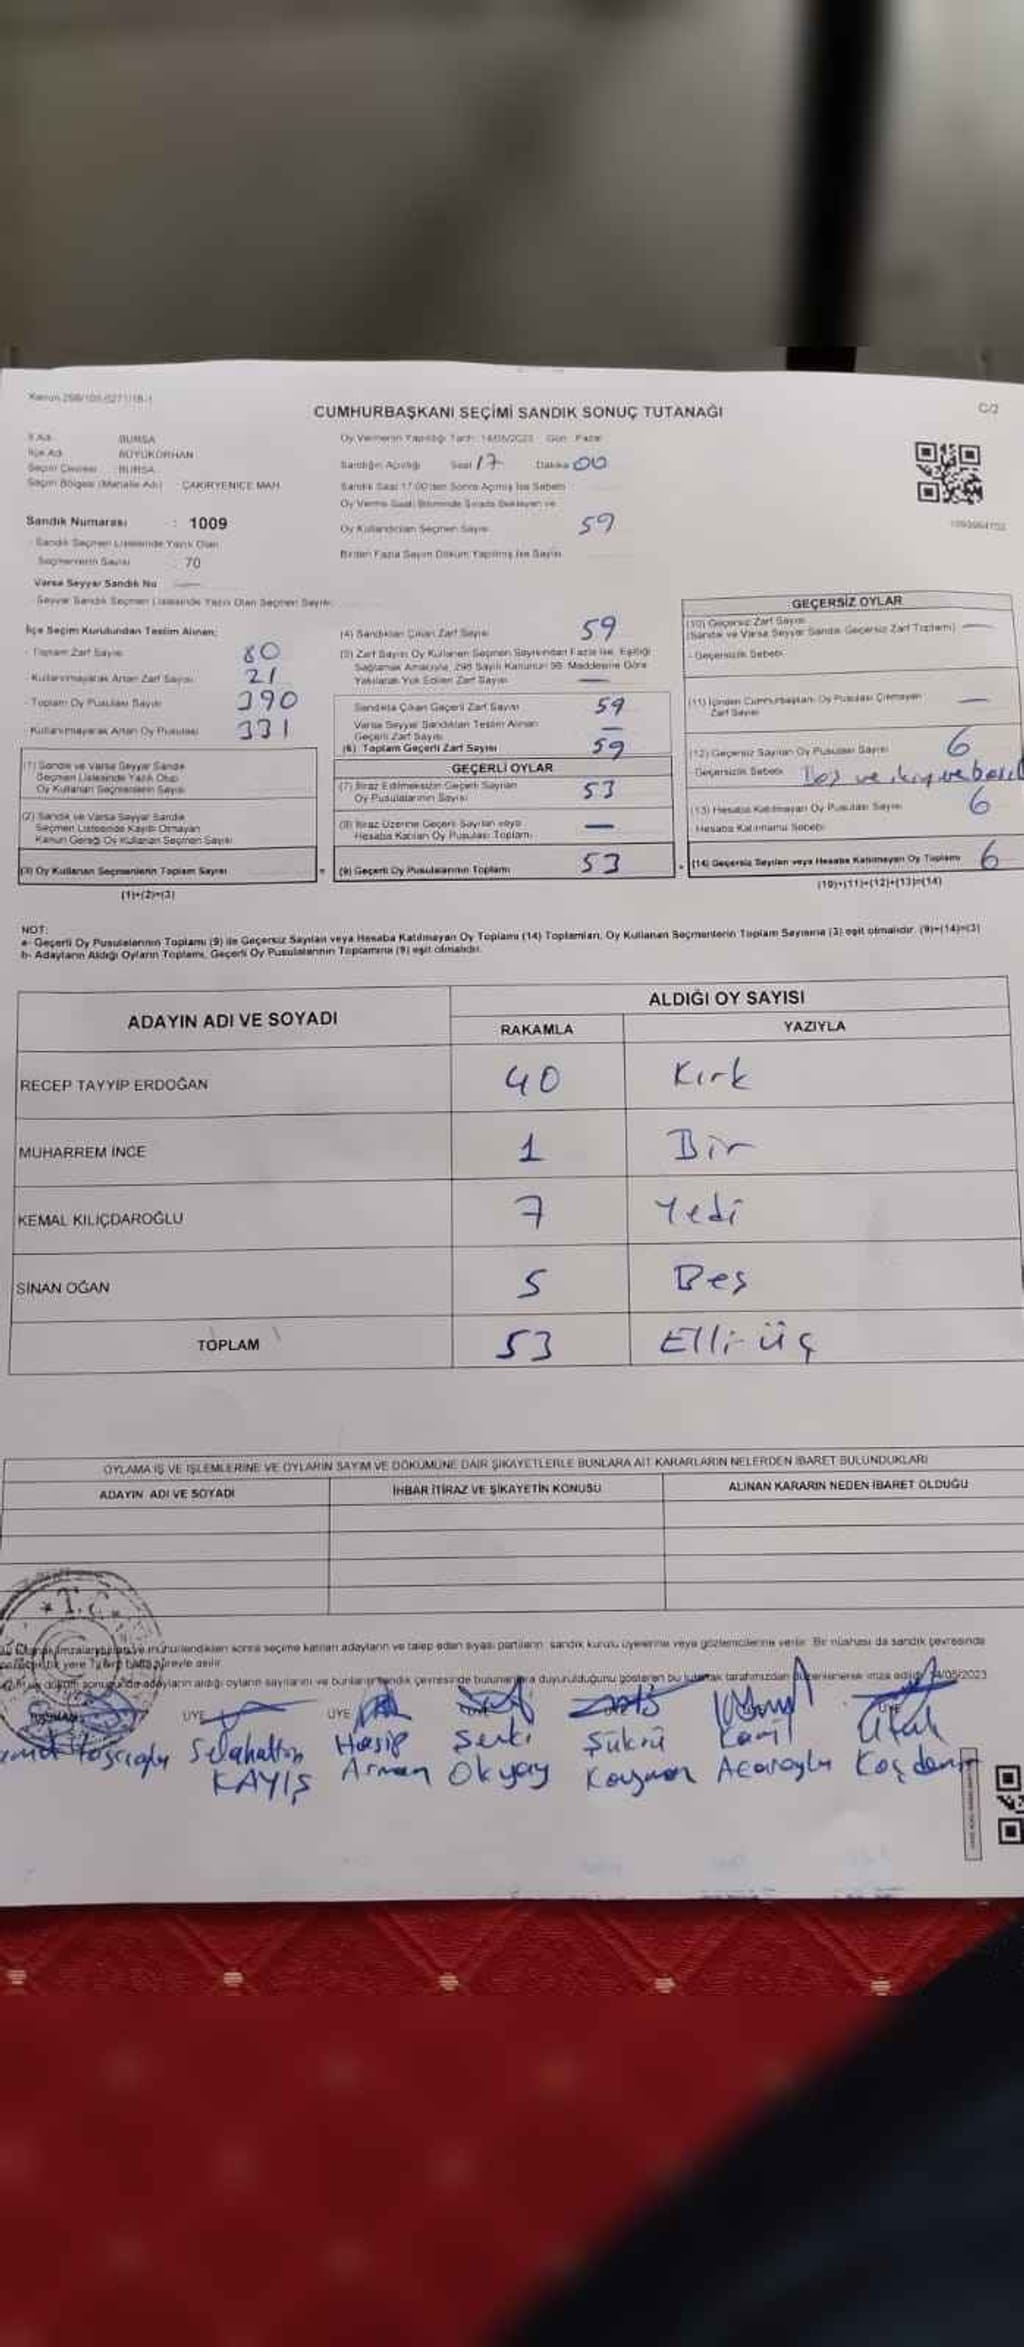 CUMHURBAŞKANI SEÇİMİ SANDIK SONUÇ TUTANAĞI
C/2
İl Adı : BURSA
İlçe Adı : BÜYÜKORHAN
Seçim Çevresi : BURSA
Seçim Bölgesi (Mahalle Adı) : ÇAKIRYENİCE MAH
Sandık Numarası : 1009
Sandık Seçmen Listesinde Yazılı Olan
Seçmenlerin Sayısı : 70
Varsa Seyyar Sandık No
Seyyar Sandık Seçmen Listesinde Yazılı Olan Seçmen Sayısı
Oy Vermenin Yapıldığı Tarih: 14/05/2023 Gün: Pazar
Sandığın Açıldığı Saat 17 Dakika 00
Sandık Saat 17:00'den Sonra Açılmış İse Sebebi
Oy Verme Saati Bitiminde Sırada Bekleyen ve
Oy Kullandırılan Seçmen Sayısı 59
Birden Fazla Sayım Döküm Yapılmış İse Sayısı
İlçe Seçim Kurulundan Teslim Alınan;
- Toplam Zarf Sayısı 80
- Kullanılmayarak Artan Zarf Sayısı 21
- Toplam Oy Pusulası Sayısı 390
- Kullanılmayarak Artan Oy Pusulası 331
(1) Sandık ve Varsa Seyyar Sandık
Seçmen Listesinde Yazılı Olup
Oy Kullanan Seçmenlerin Sayısı
(2) Sandık ve Varsa Seyyar Sandık
Seçmen Listesinde Kayıtlı Olmayan
Kanun Gereği Oy Kullanan Seçmen Sayısı
(3) Oy Kullanan Seçmenlerin Toplam Sayısı
(1)+(2)=(3)
(4) Sandıktan Çıkan Zarf Sayısı 59
(5) Zarf Sayısı Oy Kullanan Seçmen Sayısından Fazla İse, Eşitliği
Sağlamak Amacıyla, 298 Sayılı Kanunun 98. Maddesine Göre
Yakılarak Yok Edilen Zarf Sayısı —
Sandıkta Çıkan Geçerli Zarf Sayısı 59
Varsa Seyyar Sandıktan Teslim Alınan
Geçerli Zarf Sayısı —
(6) Toplam Geçerli Zarf Sayısı 59
GEÇERLİ OYLAR
(7) İtiraz Edilmeksizin Geçerli Sayılan
Oy Pusulalarının Sayısı 53
(8) İtiraz Üzerine Geçerli Sayılan veya
Hesaba Katılan Oy Pusulası Toplamı —
(9) Geçerli Oy Pusulalarının Toplamı 53
GEÇERSİZ OYLAR
(10) Geçersiz Zarf Sayısı
(Sandık ve Varsa Seyyar Sandık Geçersiz Zarf Toplamı) —
- Geçersizlik Sebebi
(11) İçinden Cumhurbaşkanı Oy Pusulası Çıkmayan
Zarf Sayısı —
(12) Geçersiz Sayılan Oy Pusulası Sayısı 6
Geçersizlik Sebebi Boş ve
(13) Hesaba Katılmayan Oy Pusulası Sayısı 6
Hesaba Katılmama Sebebi
(14) Geçersiz Sayılan veya Hesaba Katılmayan Oy Toplamı 6
(10)+(11)+(12)+(13)=(14)
NOT:
a- Geçerli Oy Pusulalarının Toplamı (9) ile Geçersiz Sayılan veya Hesaba Katılmayan Oy Toplamı (14) Toplamları, Oy Kullanan Seçmenlerin Toplam Sayısına (3) eşit olmalıdır. (9)+(14)=(3)
b- Adayların Aldığı Oyların Toplamı, Geçerli Oy Pusulalarının Toplamına (9) eşit olmalıdır.
ADAYIN ADI VE SOYADI
ALDIĞI OY SAYISI
RAKAMLA YAZIYLA
RECEP TAYYİP ERDOĞAN 40 Kırk
MUHARREM İNCE 1 Bir
KEMAL KILIÇDAROĞLU 7 Yedi
SİNAN OĞAN 5 Beş
TOPLAM 53 Elli üç
OYLAMA İŞ VE İŞLEMLERİNE VE OYLARIN SAYIM VE DÖKÜMÜNE DAİR ŞİKAYETLERLE BUNLARA AİT KARARLARIN NELERDEN İBARET BULUNDUKLARI
ADAYIN ADI VE SOYADI İHBAR İTİRAZ VE ŞİKAYETİN KONUSU ALINAN KARARIN NEDEN İBARET OLDUĞU
T.C.
imzalanıp ve mühürlendikten sonra seçime katılan adayların ve talep eden siyasi partilerin sandık kurulu üyelerine veya gözlemcilerine verilir. Bir nüshası da sandık çevresinde
adayların aldığı oyların sayılarını ve bunların sandık çevresinde bulunanlara duyurulduğunu gösteren bu tutanak tarafımızdan düzenlenerek imza edildi. 14/05/2023
ÜYE ÜYE
Selahattin Hasip Şükrü Kamil Ufuk
KAYIŞ Arman Okyay Kayman Acaroğlu Koçdemir